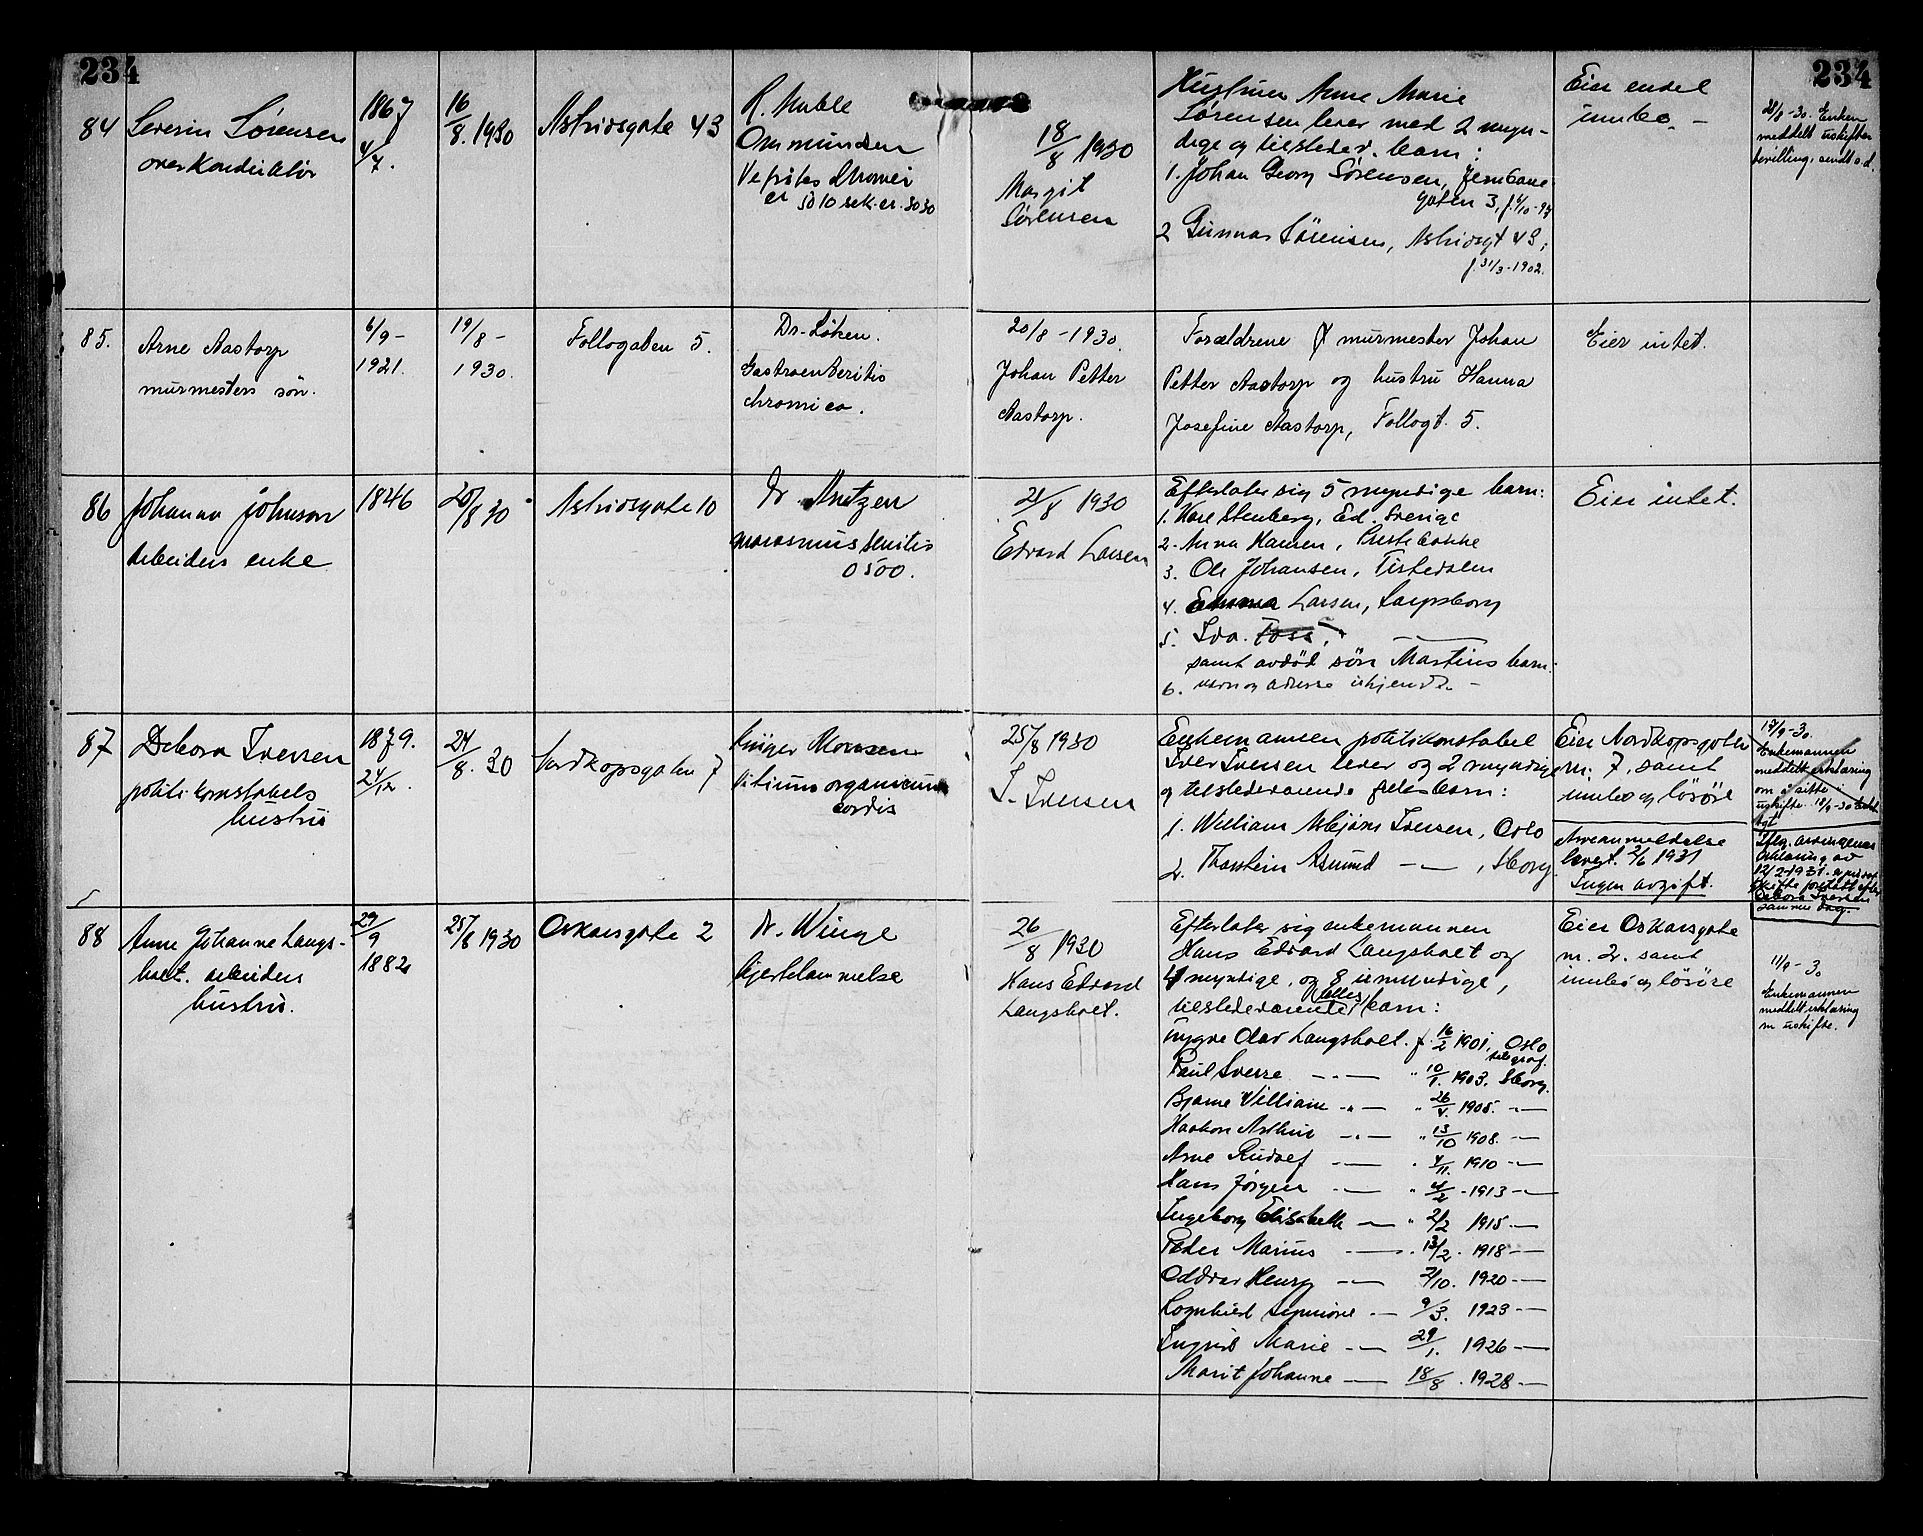 234
234
84
Severin Sørensen
overkonduktør
1867
4/7.
16/8. 1930
Astridsgate 43
R. Muble
Ommundsen
er 5010 sek. er. 3030
18/8 1930
Margit
Sørensen
Hustruen Anne Marie
Sørensen lever med 2 myn-
dige og tilstedev. barn:
1. Johan Georg Sørensen, Jernbane-
gaten 3, f. 4/10-97
2 Gunnar Sørensen, Astridsgt 43,
f. 31/3-1902.
Eier endel
innbo. -
28/8-30. Enken
meddelt uskifte-
bevilling, sendt s.d.
85.
Arne Aastorp
murmesters søn.
6/9-
1921.
19/8-
1930.
Follogaten 5.
Dr. Løken.
Gastroenteritis
chronica.
20/8-1930.
Johan Petter
Aastorp.
Forældrene murmester Johan
Petter Aastorp og hustru Hanna
Josefine Aastorp, Follogt. 5.
Eier intet.
86
Johanna Johnson
Arbeiders enke
1846
20/8 30
Astridsgate 10
Dr. Arntzen
marasmus senilis
0500.
21/8 1930
Edvard Larsen
Efterlater sig 5 myndige barn:
1. Kare Stenberg, Ed. Sverige
2. Anna Hansen, Prestebakke
3. Ole Johansen, Tistedalen
4. Emma Larsen, Sarpsborg
5. Ida. Foss,
samt avdød søn Martins barn.
6. navn og adresse ukjendt. -
Eier intet.
87
Debora Iversen
politikonstabels
hustru
1879.
24/12.
24/8. 30
Nordkapsgaten 7
Krüger Monsen
Vitium organicum
cordis
25/8 1930
I. Iversen
Enkemannen politikonstabel
Iver Iversen lever og 2 myndige
og tilstedeværende fellesbarn:
1. William Asbjørn Iversen, Oslo
2. Thorstein Asmund - " - , Sborg.
Eier Nordkapsgaten
nr. 7, samt
innbo og løsøre
Arveanmeldelse
levert 2/6 1931
Ingen avgift.
17/9-30.
Enkemannen
meddelt erklæring
om å sitte i
uskifte. 18/9-30
Iflg. arvingenes
erklæring av
12/2-1931 er privat
skifte foretatt efter
Debora Iversen
samme dag.
88
Anne Johanne Langs-
holt. arbeiders
hustru.
29/9
1882
25/8 1930
Oskarsgate 2
Dr. Winge
hjertelammelse
26/8 1930
Hans Edvard
Langsholt.
Efterlater sig enkemannen
Hans Edvard Langsholt og
4 myndige, og 8 umyndige,
tilstedeværende felles barn:
Trygve Olav Langsholt. f. 16/2 1901, Oslo
telegraf.
Paul Sverre - " - " 10/1. 1903. Sborg.
Bjarne William - " - " 26/5. 1905. - " -
Haakon Arthur - " - " 13/10 1908. - " -
Arne Rudolf - " - " 4/11. 1910 - " -
Hans Jørgen - " - " 4/2 - 1913 - " -
Ingeborg Elisabeth - " - " 2/2 1915 - " -
Peder Marius - " - " 13/2. 1918 - " -
Oddvar Henry - " - 2/10. 1920 - " -
Ragnhild Synnøve - " - 9/3. 1923 - " -
Ingrid Marie - " - 29/1. 1926 - " -
Marit Johanne - " - 18/8. 1928 - " -
Eier Oskarsgate
nr. 2. samt
innbo og løsøre
11/9-30
Enkemannen
meddelt erklæring
m uskifte.